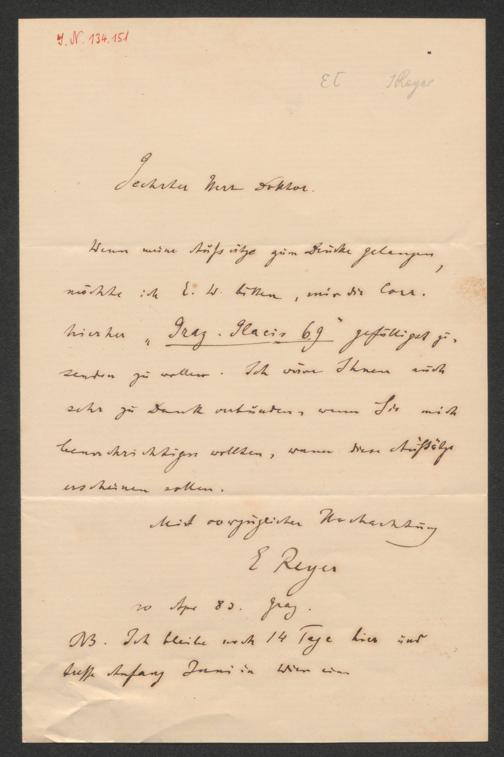 J. N. 134.151
E Reyer
Geehrter Herr Doktor.
Wenn meine Aufsätze zum Drucke gelangen,
möchte ich E. W. bitten, mir die Corr.
hierher „Graz. Glacis 69" gefälligst zu-
senden zu wollen. Ich wäre Ihnen auch
sehr zu Dank verbunden, wenn Sie mich
benachrichtigen wollten, wann diese Aufsätze
erscheinen sollen.
Mit vorzüglicher Hochachtung
E Reyer
20 Apr 83. Graz.
NB. Ich bleibe noch 14 Tage hier und
treffe Anfang Juni in Wien ein